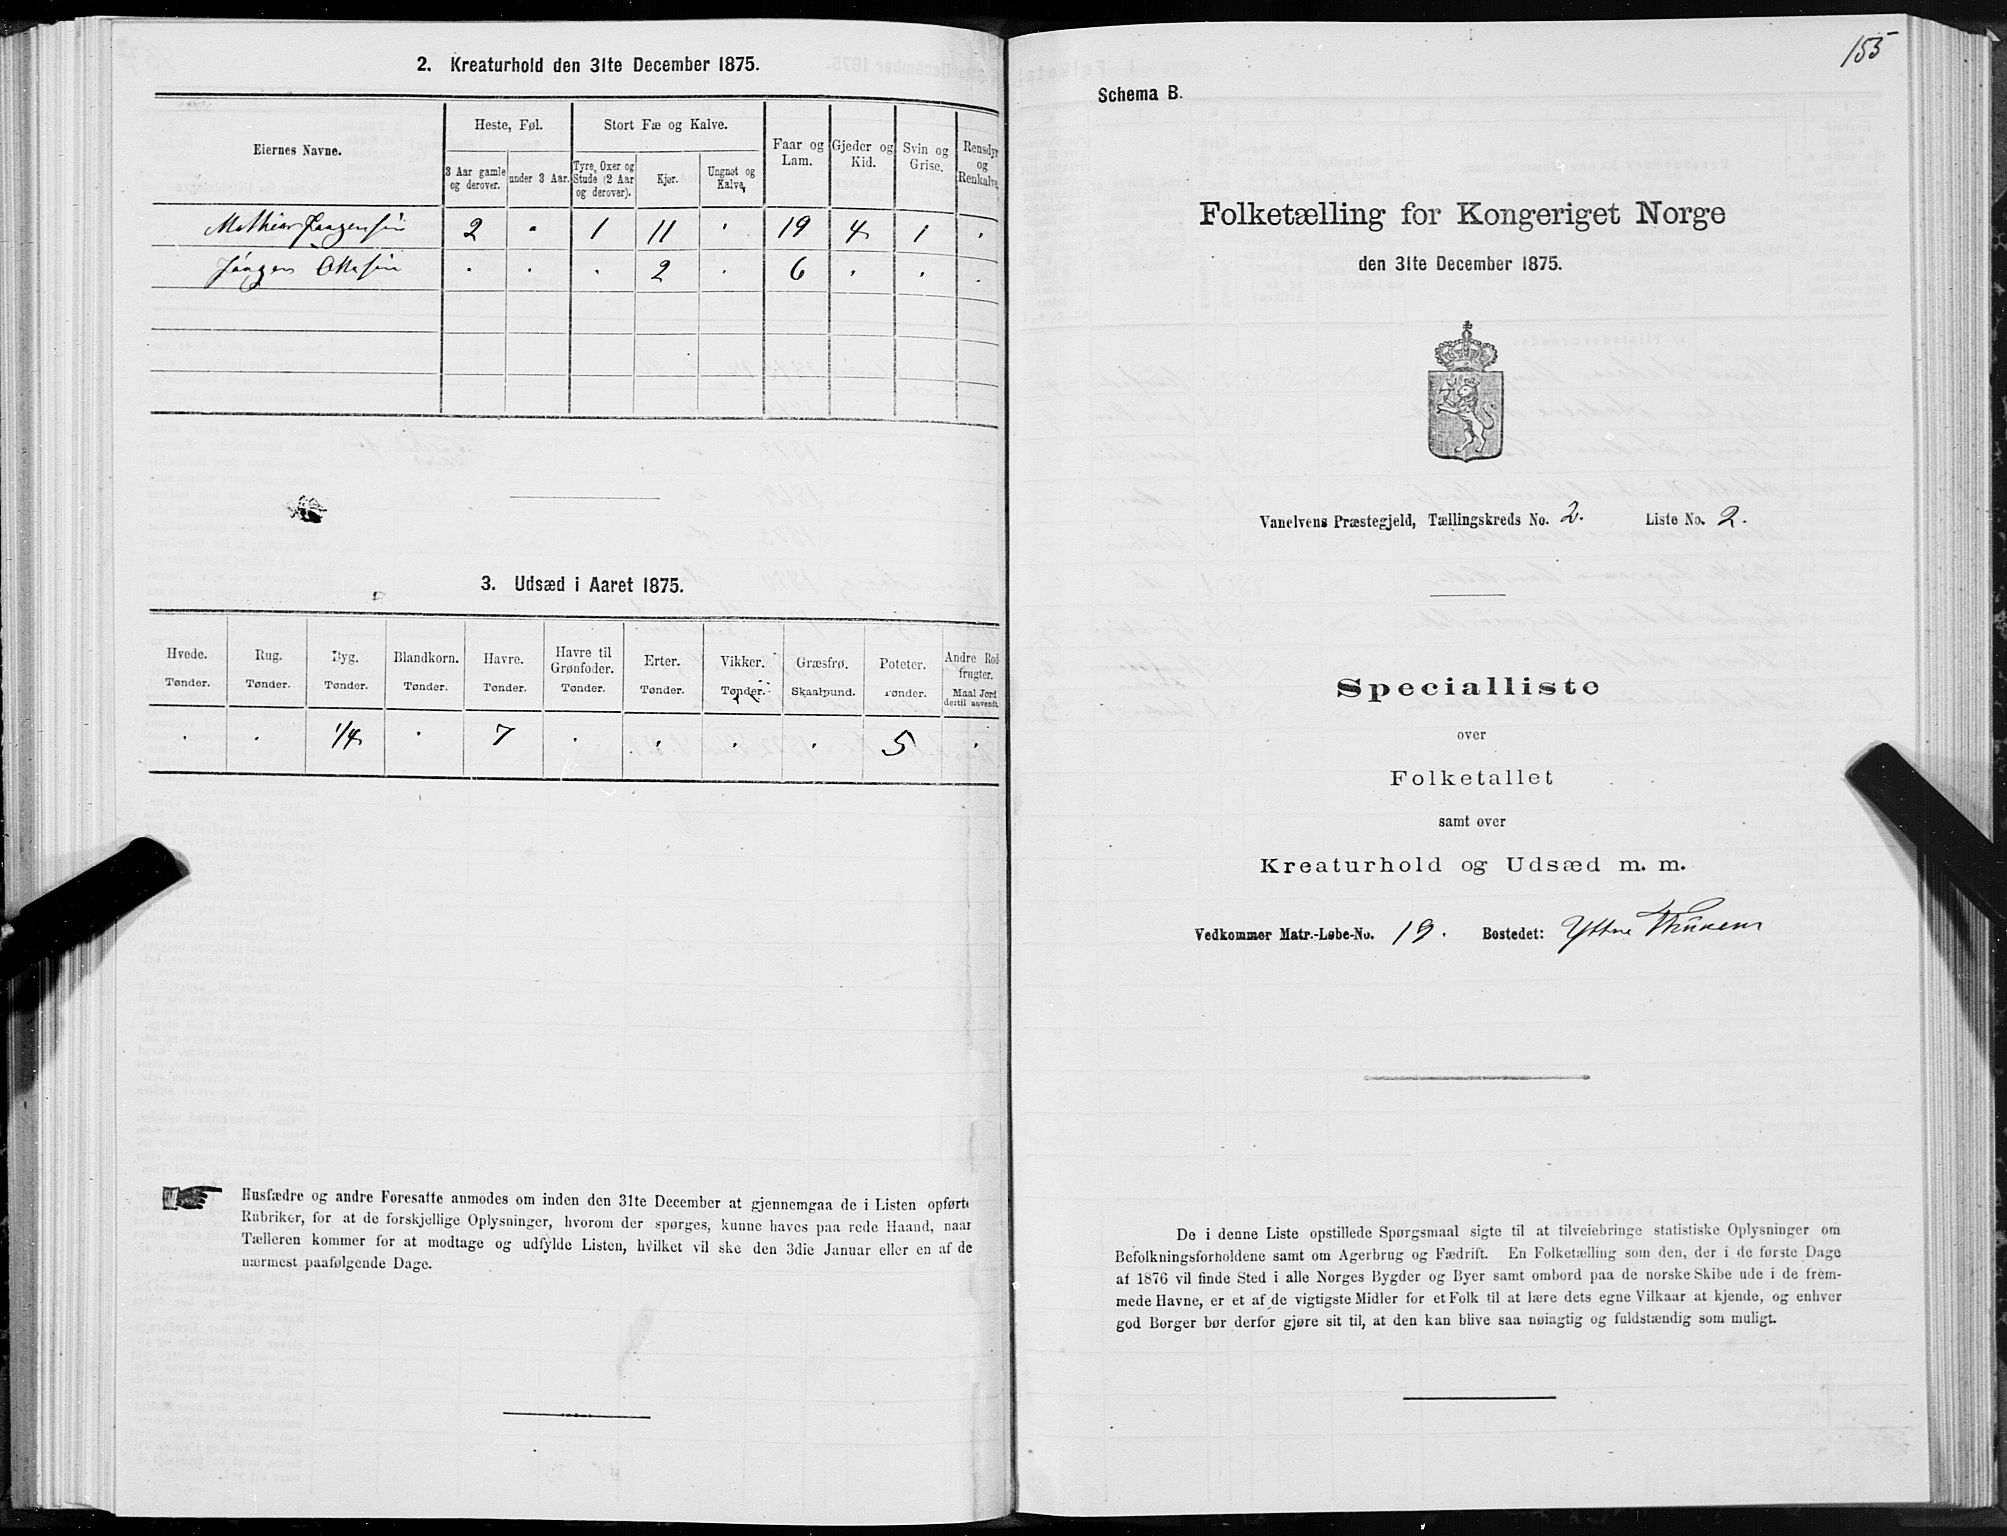 2. Kreaturhold den 31te December 1875.
Eiernes Navne.
Heste, Føl.
Stort Fæ og Kalve.
Faar og Lam.
Gjeder og Kid.
Svin og Grise.
Rensdyr og Renkalve.
3 Aar gamle og derover.
under 3 Aar.
Tyre, Oxer og Stude (2 Aar og derover).
Kjør.
Ungnøt og Kalve.
Mathias Jørgensøn 2 " 1 11 . 19 4 1 .
Jørgen Ottesøn . . . 2 . 6 . . .
3. Udsæd i Aaret 1875.
Hvede. Rug. Byg. Blandkorn. Havre. Havre til Grønfoder. Erter. Vikker. Græsfrø. Poteter. Andre Rodfrugter.
Tønder. Tønder. Tønder. Tønder. Tønder. Tønder. Tønder. Tønder. Skaalpund. Tønder. Maal Jord dertil anvendt.
. . 1/4 . 7 . . . . 5 .
Husfædre og andre Foresatte anmodes om inden den 31te December at gjennemgaa de i Listen opførte
Rubriker, for at de forskjellige Oplysninger, hvorom der spørges, kunne haves paa rede Haand, naar
Tælleren kommer for at modtage og udfylde Listen, hvilket vil ske den 3die Januar eller en af de
nærmest paafølgende Dage.
155
Schema B.
Folketælling for Kongeriget Norge
den 31te December 1875.
Vanelvens Præstegjeld, Tællingskreds No. 2. Liste No. 2.
Specialliste
over
Folketallet
samt over
Kreaturhold og Udsæd m. m.
Vedkommer Matr.-Løbe-No. 19. Bostedet: Yttre
De i denne Liste opstillede Spørgsmaal sigte til at tilveiebringe statistiske Oplysninger om
Befolkningsforholdene samt om Agerbrug og Fædrift. En Folketælling som den, der i de første Dage
af 1876 vil finde Sted i alle Norges Bygder og Byer samt ombord paa de norske Skibe ude i de frem-
mede Havne, er et af de vigtigste Midler for et Folk til at lære dets egne Vilkaar at kjende, og enhver
god Borger bør derfor gjøre sit til, at den kan blive saa nøiagtig og fuldstændig som muligt.